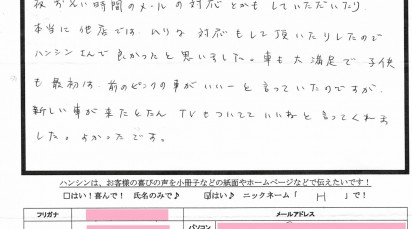 夜おそい時間のメールの対応とかもしていただいたり
本当に他店では、ムリな対応もして頂いたりしたので
ハンシンさんで良かったと思いました。車も大満足で子供
も最初は、前のピンクの車がいいーと言っていたのですが、
新しい車が来たとたんTVもついてていいねと言ってくれま
した。よかったです。
ハンシンは、お客様の喜びの声を小冊子などの紙面やホームページなどで伝えたいです！
□はい！喜んで！ 氏名のみで♪ ☑はい♪ ニックネーム「 H 」で！
フリガナ メールアドレス
パソコン